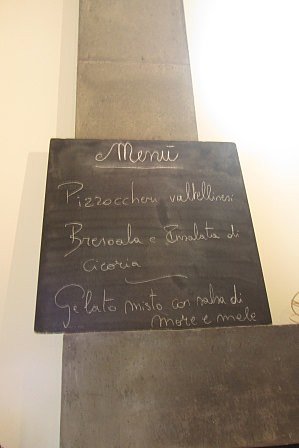 Menù
Pizzoccheri valtellinesi
Bresaola e Insalata di
Cicoria
Gelato misto con salsa di
more e mele